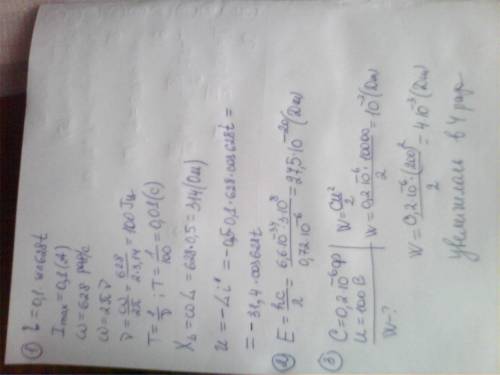 ① i = 0,1·sin628t
Imax = 0,1(А)
ω = 628 рад/с
ω = 2πν
ν = ω/2π = 628/2·3,14 = 100 Гц
T = 1/ν ; T = 1/100 = 0,01(с)
X_L = ωL = 628·0,5 = 314(Ом)
u = -Li' = -0,5·0,1·628·cos628t =
= -31,4·cos628t
② E = hc/λ = 6,6·10^-34·3·10^8/0,72·10^-6 = 27,5·10^-20(Дж)
③ C = 0,2·10^-6ф
U = 100 В
W - ?
W = CU²/2
W = 0,2·10^-6·10000/2 = 10^-3(Дж)
W = 0,2·10^-6·(200)²/2 = 4·10^-3(Дж)
увеличилась в 4 раза